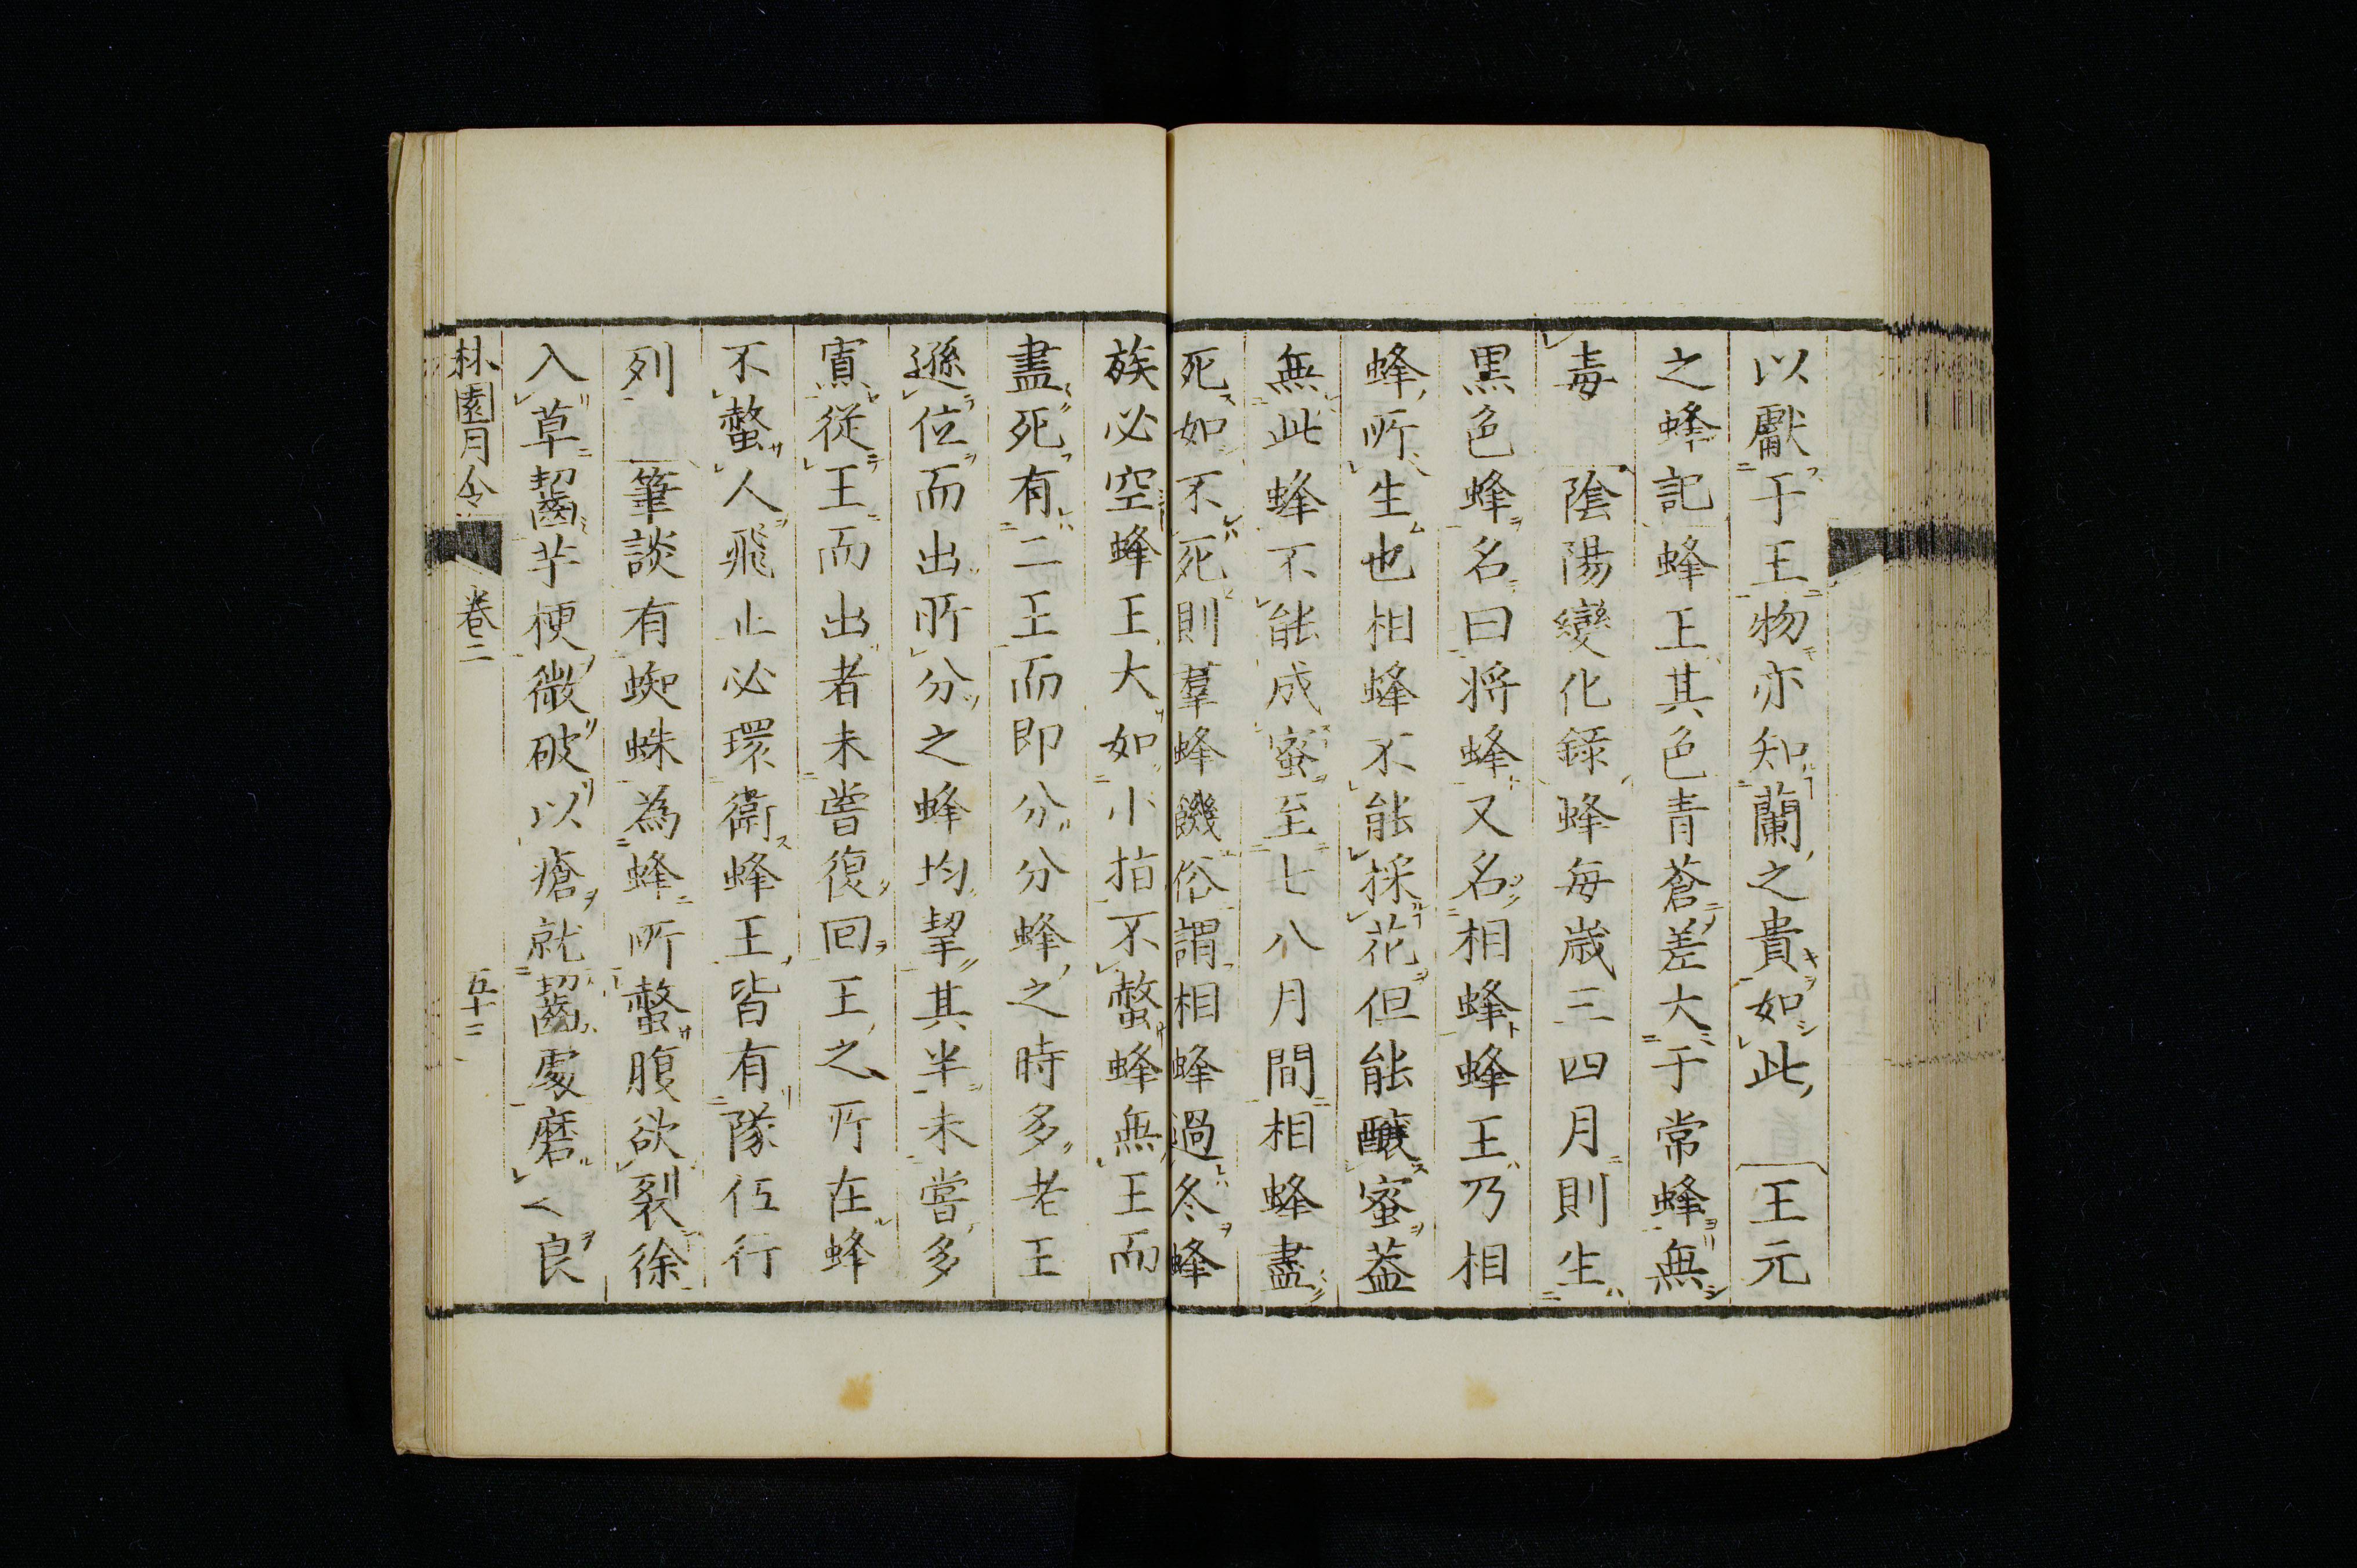 以獻于王物亦知蘭之貴如此王元
之蜂記蜂王其色青蒼差大于常蜂無
毒陰陽變化錄蜂每歲三四月則生
黑色蜂名曰將蜂又名相蜂蜂王乃相
蜂所生也相蜂不能採花但能釀蜜蓋
無此蜂不能成蜜至七八月間相蜂盡
死如不死則羣蜂饑俗謂相蜂過冬蜂
族必空蜂王大如小指不螫蜂無王而
盡死有二王而即分分蜂之時多老王
遜位而出所分之蜂均挈其半未嘗多
寡從王而出者未嘗復回王之所在蜂
不螫人飛止必環衞蜂王皆有隊伍行
列筆談有蜘蛛為蜂所螫腹欲裂徐
入草齧芋梗微破以瘡就齧處磨之良
林園月令
卷二
五十三